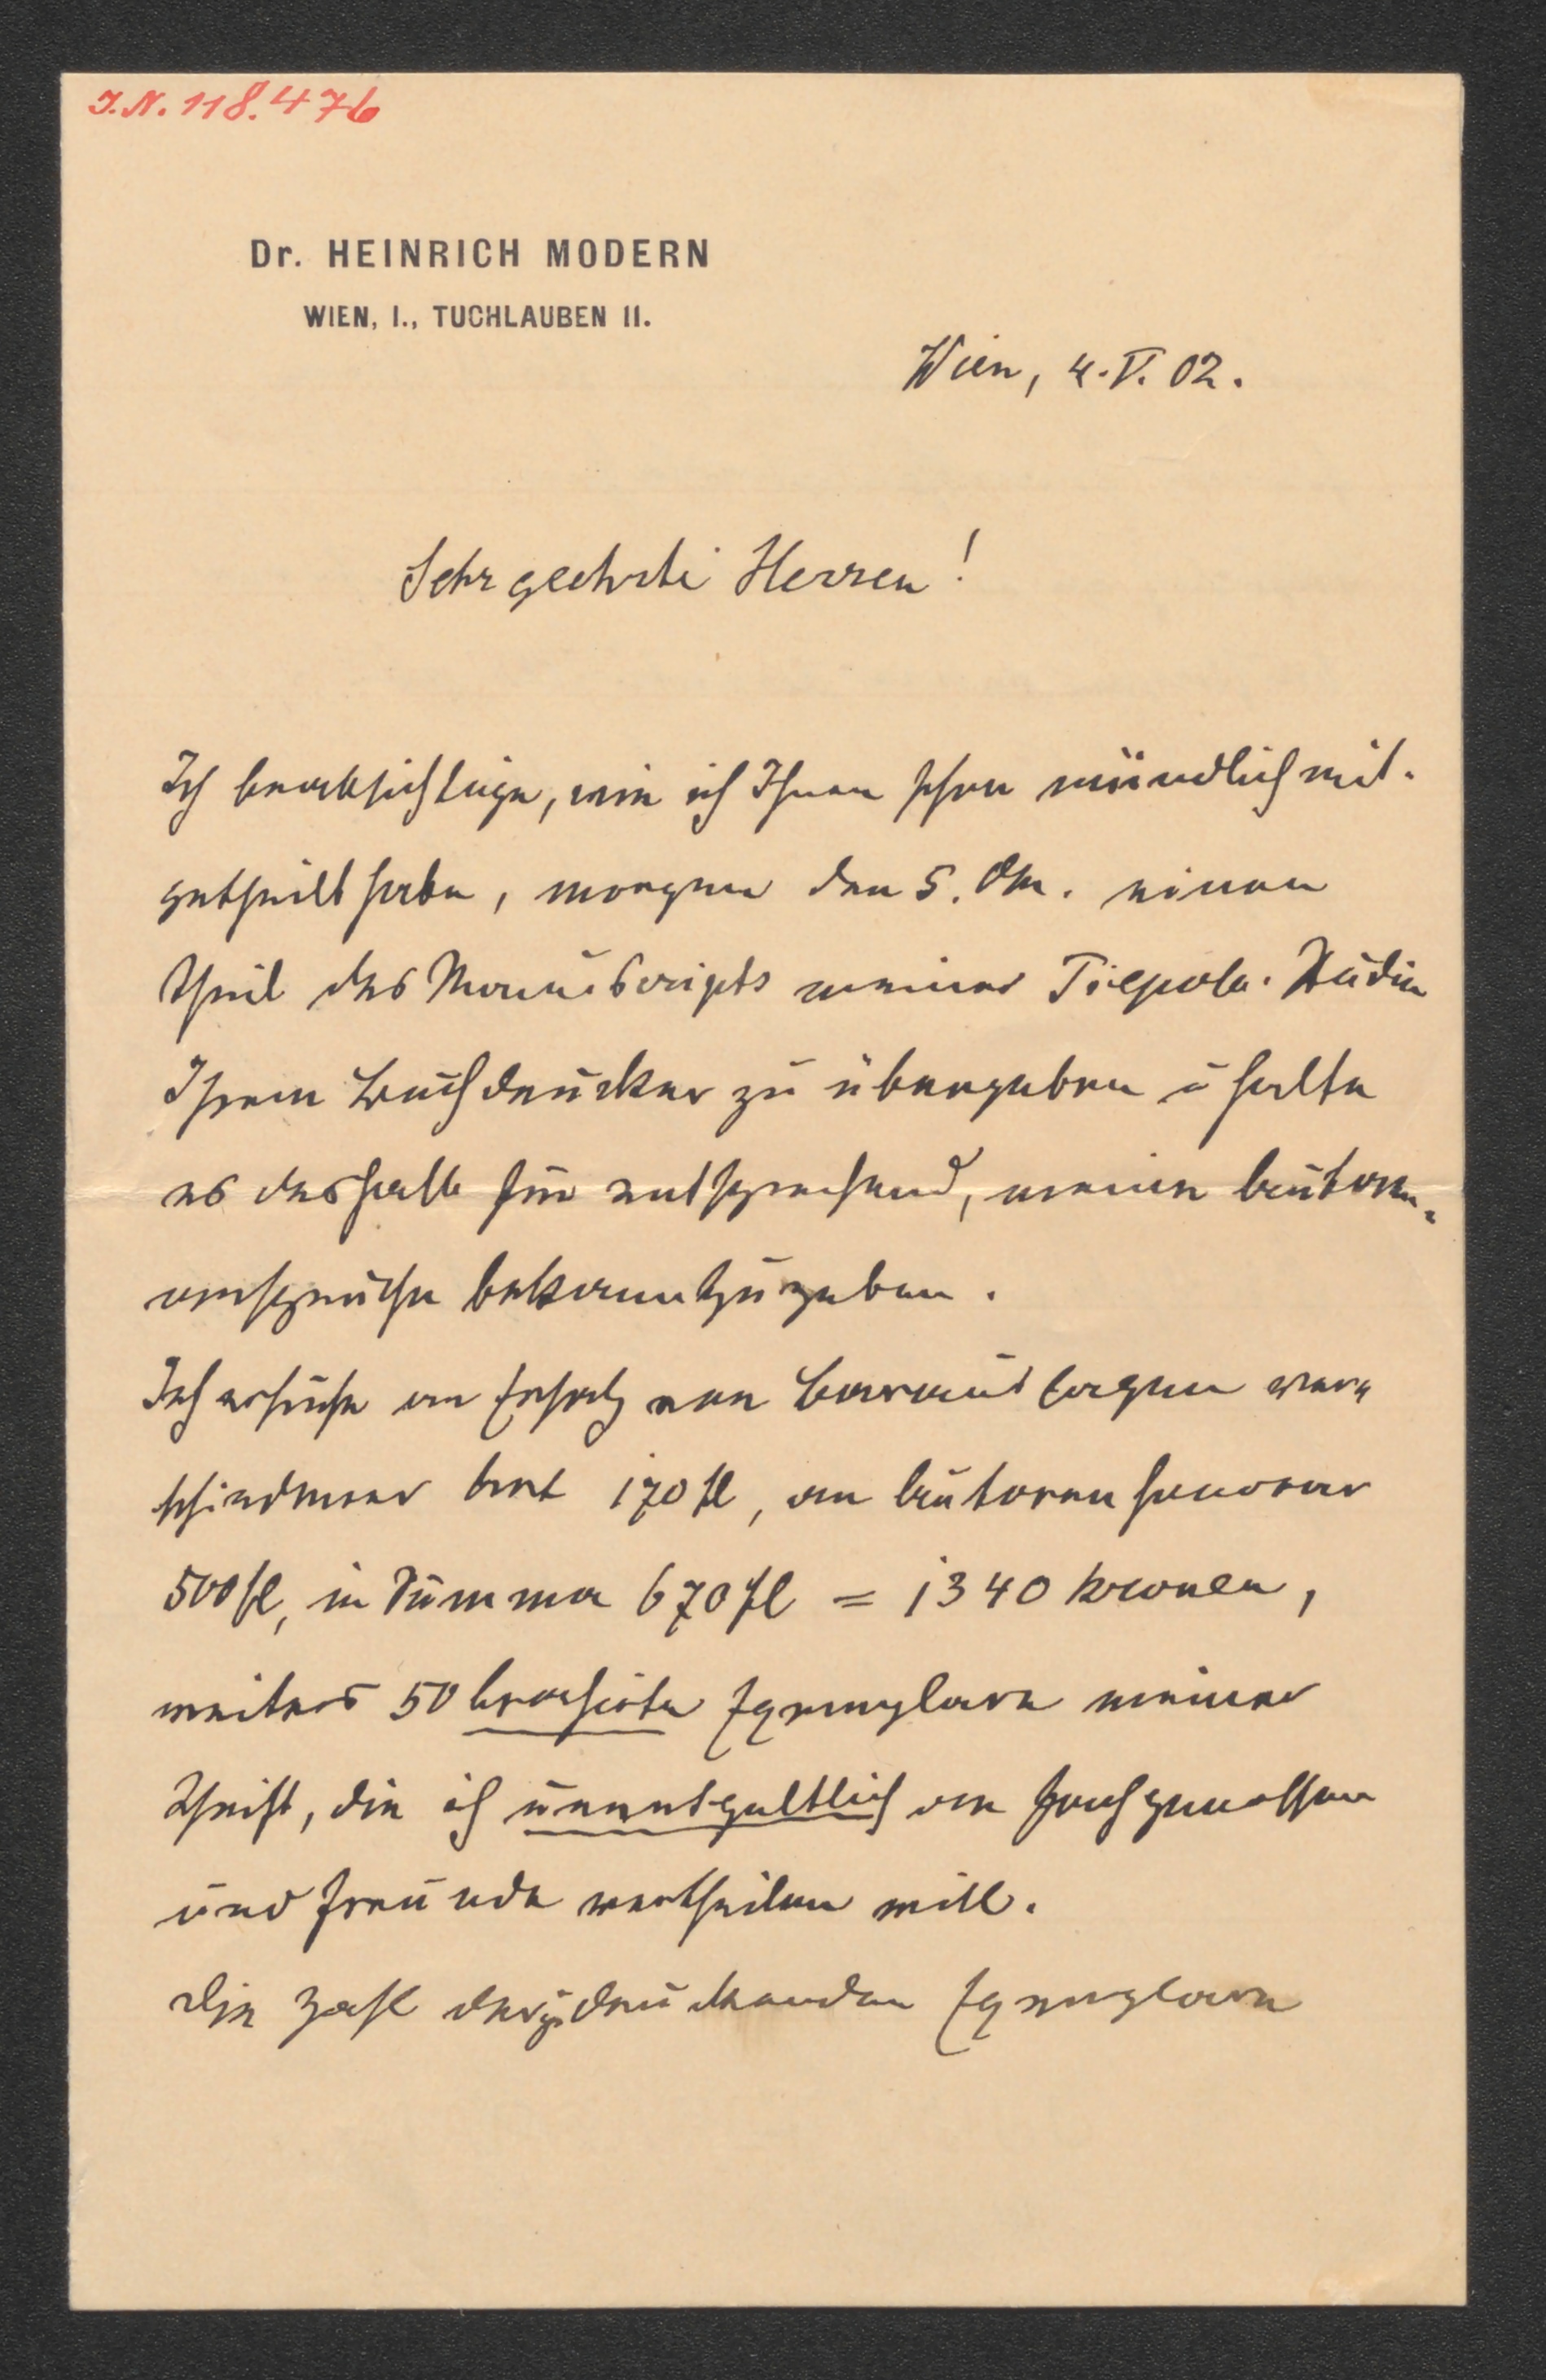 J.N. 118.476
Dr. HEINRICH MODERN
WIEN, I., TUCHLAUBEN 11.
Wien, 4. V. 02.
Sehr geehrte Herren!
Ich beabsichtige, wie ich Ihnen schon mündlich mit-
getheilt habe, morgen den 5. dM. einen
Theil des Manuscripts meiner Tiepolo-Studie
Ihrem Buchdrucker zu übergeben u halte
es deshalb für entsprechend, meine Autoren-
ansprüche bekanntzugeben.
Ich ersuche um Ersatz von Barauslagen ver-
schiedener Art 170 fl, an Autorenhonorar
500 fl, in Summa 670 fl = 1340 Kronen,
weiters 50 brochirte Exemplare meiner
Schrift, die ich unentgeltlich an Fachgenossen
und Freunde vertheilen will.
Die Zahl der zu druckenden Exemplare